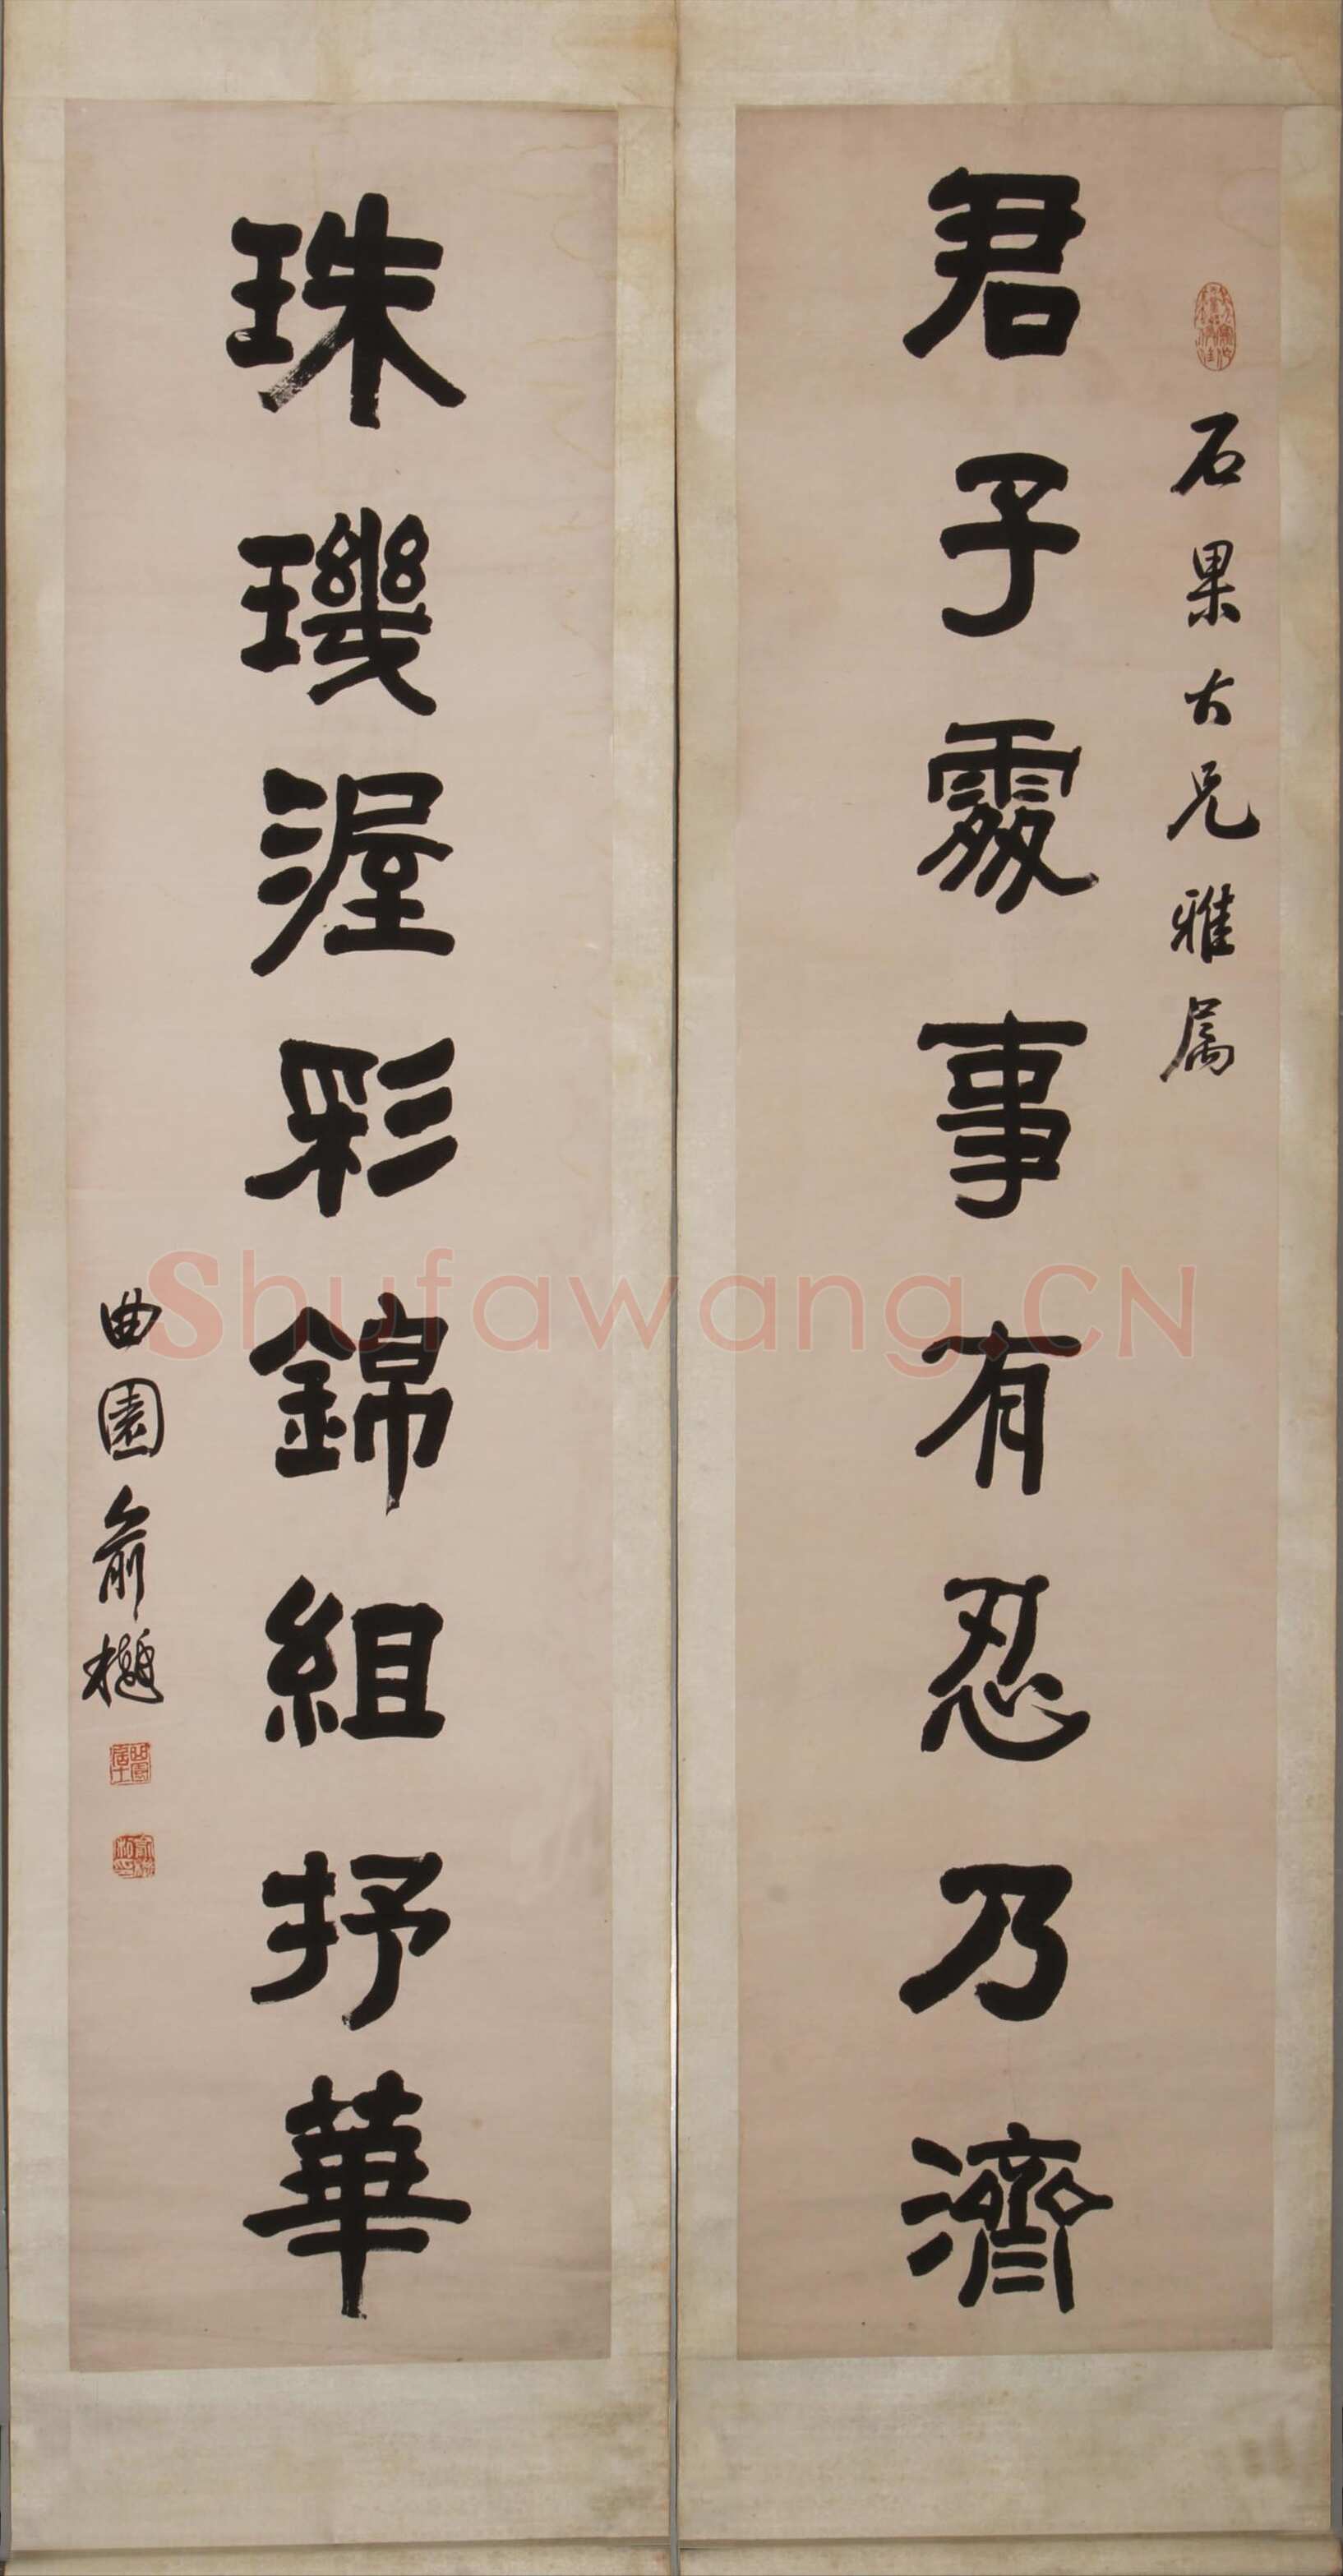 石果大兄雅属
君子處事有忍乃濟
珠璣渥彩錦組抒華
曲園俞樾
曲園居士
Shufawang.CN